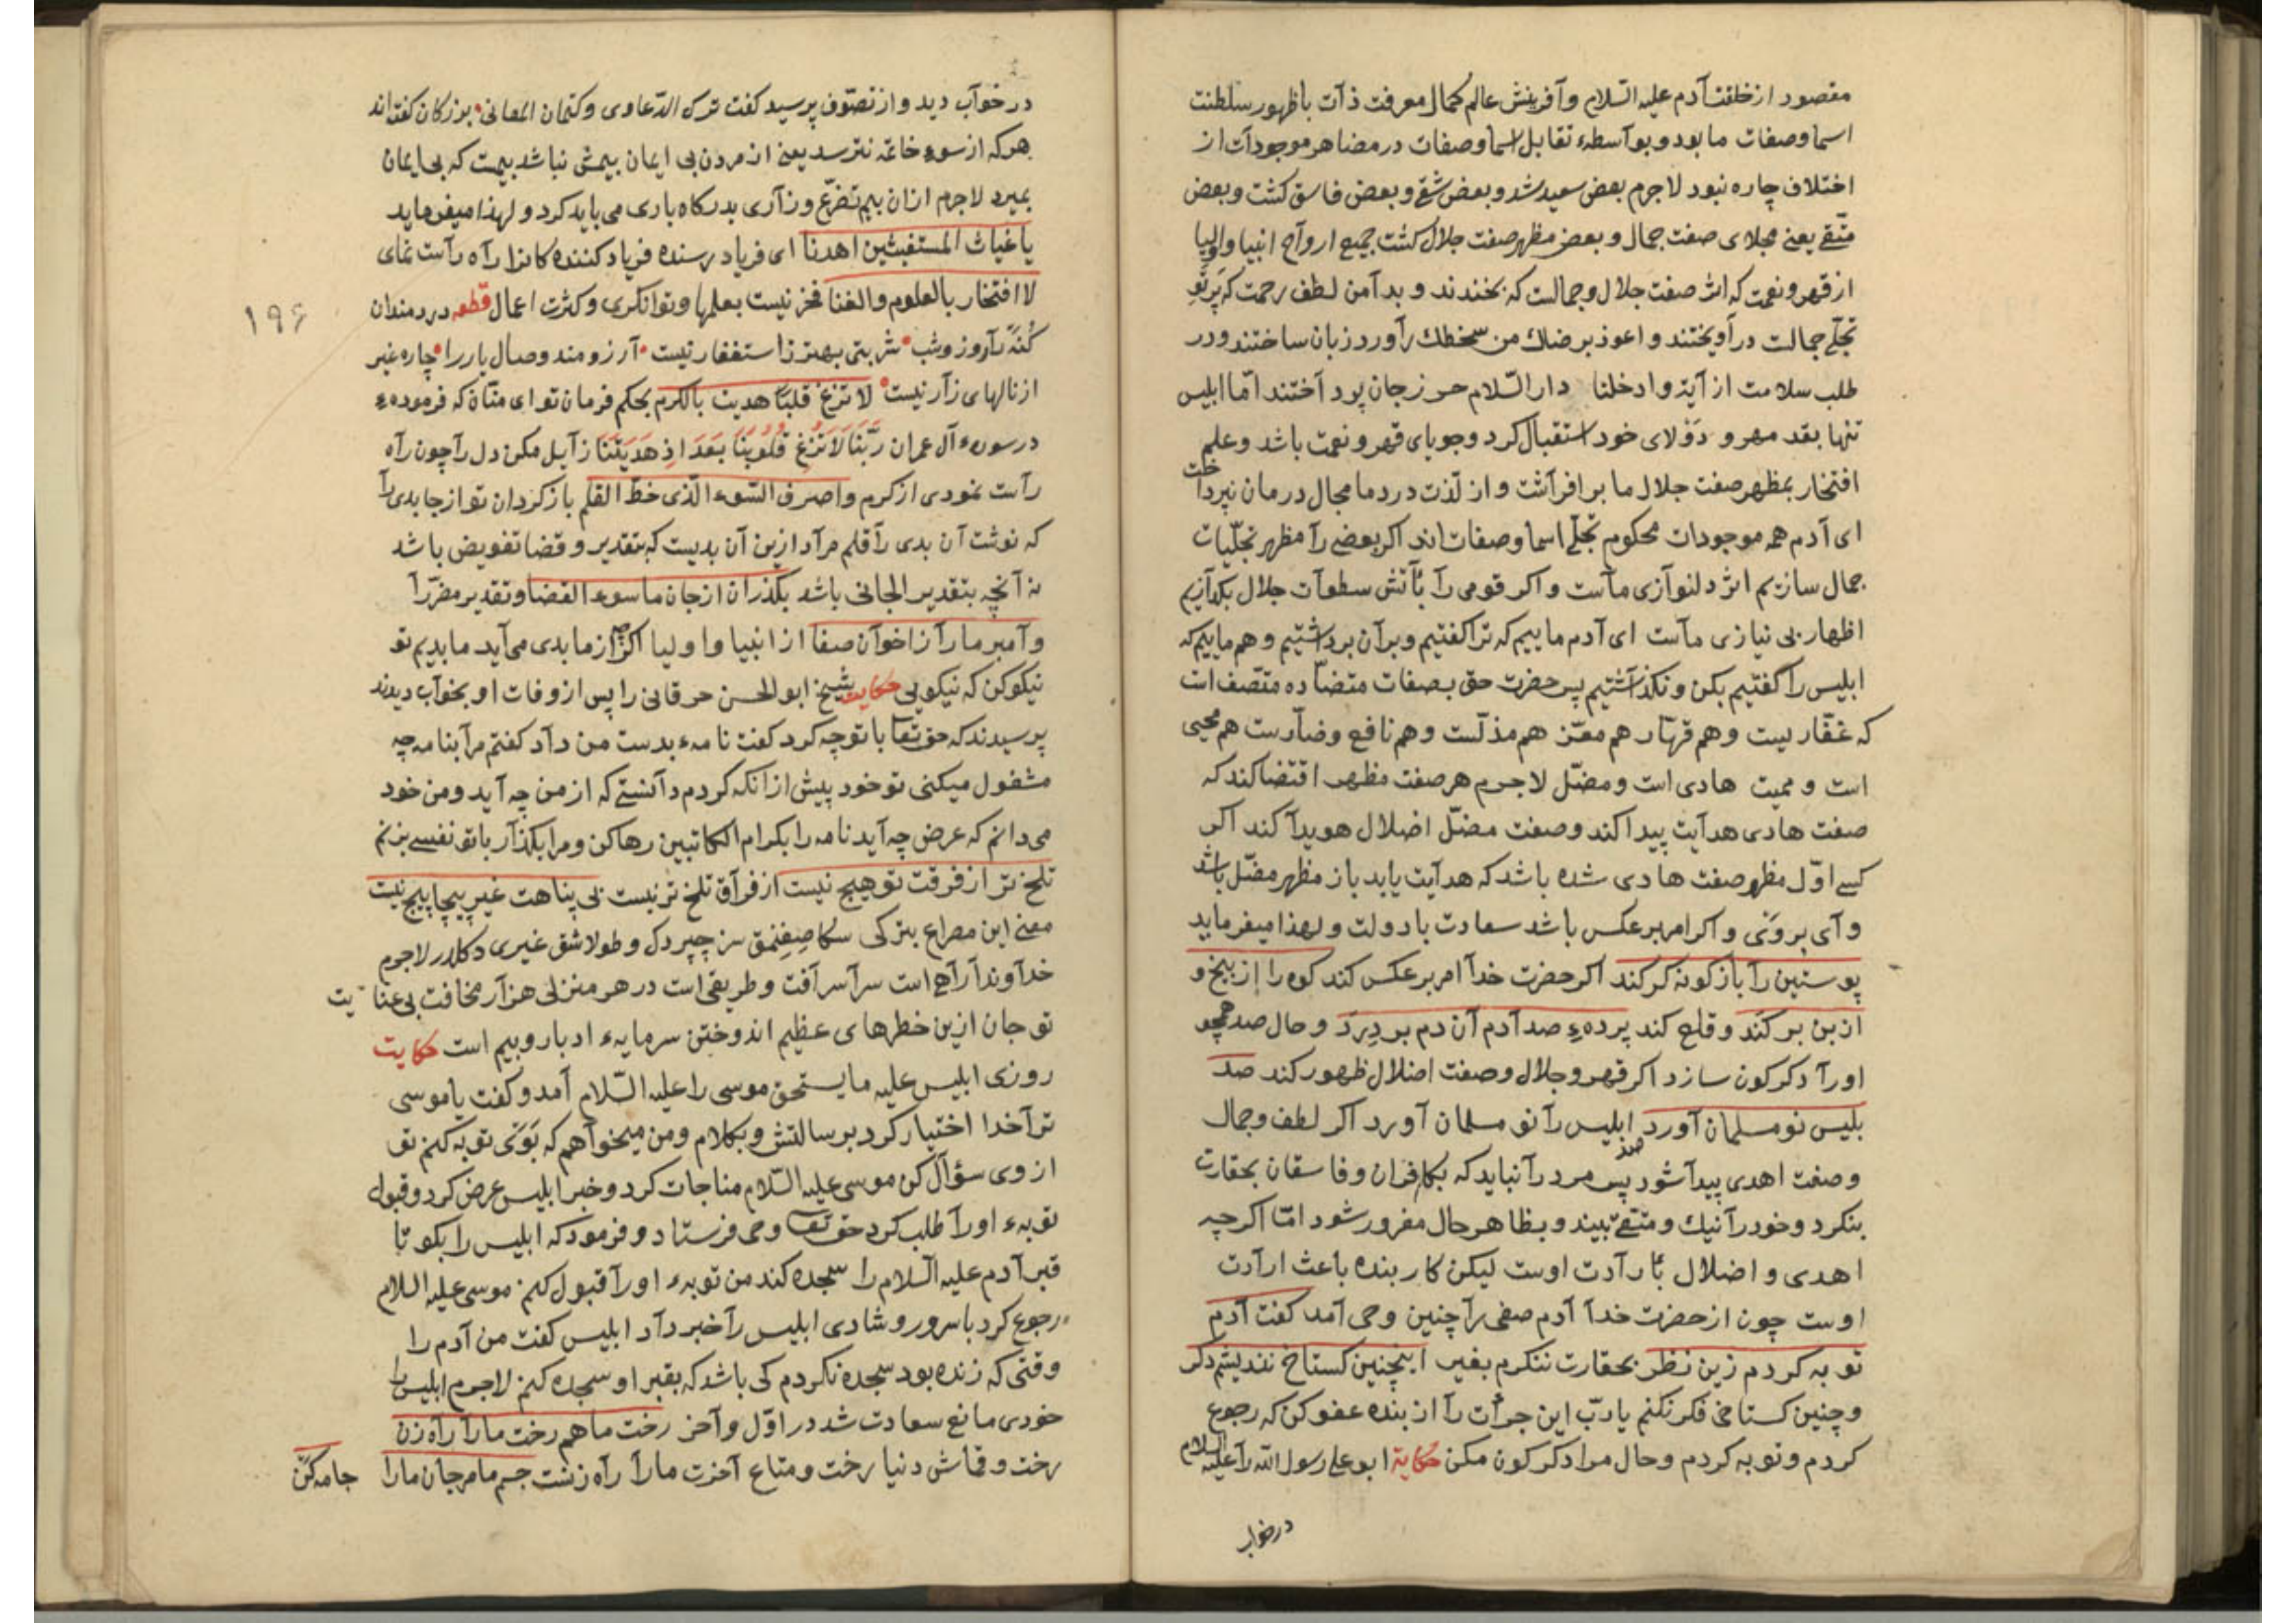 مقصود از خلقت آدم علیه السلام و آفرینش عالم کمال معرفت ذات با ظهور سلطنت
اسما و صفات ما بود و بواسطهٔ تقابل اسما و صفات در مضاهر موجودات از
اختلاف چاره نبود لاجرم بعض سعید شد و بعض شقی و بعض فاسق کشت و بعض
متّقی یعنی مجلای صفت جمال و بعض مظهر صفت جلال کشت جمیع ارواح انبیا و اولیا
از قهر و نعمت که اثر صفت جلال و جمالست که بخندند و بدآمن لطف رحمت که پرتو
تجلّی جمالست درآویختند و اعوذ برضاك من سخطك رآ ورد زبان ساختند و در
طلب سلامت از آیة وادخلنا دار السّلام حرز جان پرداختند امّا ابلیس
تنها بقد مهر و دولای خود استقبال کرد و جویای قهر و نعمت باشد و علم
افتخار بمظهر صفت جلال ما برافرآشت و از لذّت درد ما مجال درمان نپرداخت
ای آدم همه موجودات محکوم تجلّی اسما و صفات اند اکر بعضی رآ مظهر تجلّیات
جمال سازیم اثر دلنوازی مآست و اکر قومی رآ بآتش سطوآت جلال بکدآزیم
اظهار بی نیازی مآست ای آدم ماییم که ترا کفتیم و برآن برداشتیم و هم ماییم که
ابلیس را کفتیم بکن و نکذاشتیم پس حضرت حق بصفات متضآدّه متّصف است
که غفّار یست و هم قهّار هم معزّ هم مذلّست و هم نافع و ضآرّست هم محیی
است و ممیت هادی است و مضلّ لاجرم هر صفت مظهر اقتضا کند که
صفت هادی هدآیت پیدا کند و صفت مضلّ اضلال هویدآ کند اکر
کسی اوّل مظهر صفت هادی شده باشد که هدآیت یابد باز مظهر مضلّ باشد
وآی بر وَیْ و اکر امر بر عکس باشد سعادت با دولت و لهذا میفرماید
پوستین رآ بازکونه کر کند اکر حضرت خدآ امر بر عکس کند کوه را از بیخ و
از بن بر کَنَد و قلع کند پردهٔ صد آدم آن دم بر دِرَد و حال صد همچو
اورآ دکرکون سازد اکر قهر و جلال و صفت اضلال ظهور کند صد
بلیس نو مسلمان آورد صد ابلیس رآ نو مسلمان آورد اکر لطف و جمال
و صفت اهدی پیدآ شود پس مرد رآ نباید که بکافران و فاسقان بحقارت
بنکرد و خود رآ نیك و متّقی بیند و بظاهر حال مغرور شود امّا اکرچه
اهدی و اضلال بارآدت اوست لیکن کار بنده باعث ارآدت
اوست چون از حضرت خدآ آدم صفی رآ چنین وحی آمد کفت آدم
توبه کردم زین نظر بحقارت ننکرم بغیر اینچنین کستاخ نندیشم دکر
و چنین کستاخی فکر نکنم یا ربّ این جرأت رآ از بنده عفو کن که رجوع
کردم و توبه کردم و حال مرا دکرکون مکن حکایة ابو علی رسول الله رآ علیه السلام
در خواب
در خوآب دید و از تصوّف پرسید کفت ترك الدّعاوی و کتمان المعانی بزرکان کفته اند
هر که از سوء خاتمه نترسد یعنی از مردن بی ایمان بیمش نباشد بیمست که بی ایمان
بمیرد لاجرم ازان بیم تضرّع و زآری بدرکاه باری می باید کرد و لهذا میفرماید
یا غیاث المستغیثین اهدنا ای فریاد رسنده فریاد کننده کانرا رآه رآست نمای
لا افتخار بالعلوم والغنا فخر نیست بعلمها و توانکری و کثرت اعمال قطعه دردمندان
کُنَه رآ روز و شب شربتی بهتر ز استغفار نیست آرزومند وصال یار را چاره غیر
از نالهای زآر نیست لا تزغ قلبًا هدیت بالکرم بحکم فرمان تو ای منّان که فرمودهٔ
در سورهٔ آل عمران رَبَّنَا لَا تُزِغْ قُلُوبَنَا بَعْدَ اِذْ هَدَیْتَنَا زآیل مکن دل رآ چون رآه
رآست نمودی از کرم واصرف السّوء الّذی خطّ القلم باز کردان تو از جا بدی رآ
که نوشت آن بدی رآ قلم مرآد ازین آن بدیست که بتقدیر و قضا تفویض باشد
نه آنچه بتقدیر الجانی باشد بکذران از جان ما سوء القضا و تقدیر مضرّ رآ
وآمبر ما رآ ز اخوآن صفا از انبیا و اولیا اکر چه از ما بدی می آید ما بدیم تو
نیکو کن که نیکویی حکایت شیخ ابو الحسن خرقانی را پس از وفات او بخوآب دیدند
پرسیدند که حق تعا با تو چه کرد کفت نامهٔ بدست من دآد کفتم مرآ بنامه چه
مشغول میکنی تو خود پیش از انکه کردم دآنستی که از من چه آید و من خود
می دانم که عرض چه آید نامه را بکرام الکاتبین رها کن و مرا بکذآر با تو نفسی بزنم
تلخ تر از فرقت تو هیچ نیست از فرآق تلخ تر نیست بی پناهت غیر پیچاپیچ نیست
معنی این مصراع بترکی سکا صغنمق سز چپردل و طولاشق غیری دکلدر لاجرم
خدآوندآ رآهی است سرآسر آفت و طریقی است در هر منزلی هزآر مخافت بی عنایت
تو جان ازین خطرهای عظیم اندوختن سرمایهٔ ادبار و بیم است حکایت
روزی ابلیس علیه ما یستحق موسی را علیه السّلام آمد و کفت یا موسی
ترآ خدا اختیار کرد برسالتش و بکلام و من میخوآهم که بَوَیْ توبه کنم تو
از وی سؤآل کن موسی علیه السّلام مناجات کرد و خبر ابلیس عرض کرد و قبول
توبهٔ اورآ طلب کرد حق تعا وحی فرستاد و فرمود که ابلیس را بکو تا
قبر آدم علیه السّلام را سجده کند من توبهٔ اورآ قبول کنم موسی علیه السلام
رجوع کرد با سرور و شادی ابلیس رآ خبر دآد ابلیس کفت من آدم را
وقتی که زنده بود سجده نکردم کی باشد که بقبر او سجده کنم لاجرم ابلیس را
خودی مانع سعادت شد در اوّل و آخر رخت ما هم رخت مارا رآه زن
رخت و قماش دنیا رخت و متاع آخرت مارآ رآه زنست جسم ما مر جان مارا جامه کن
۱۹۶